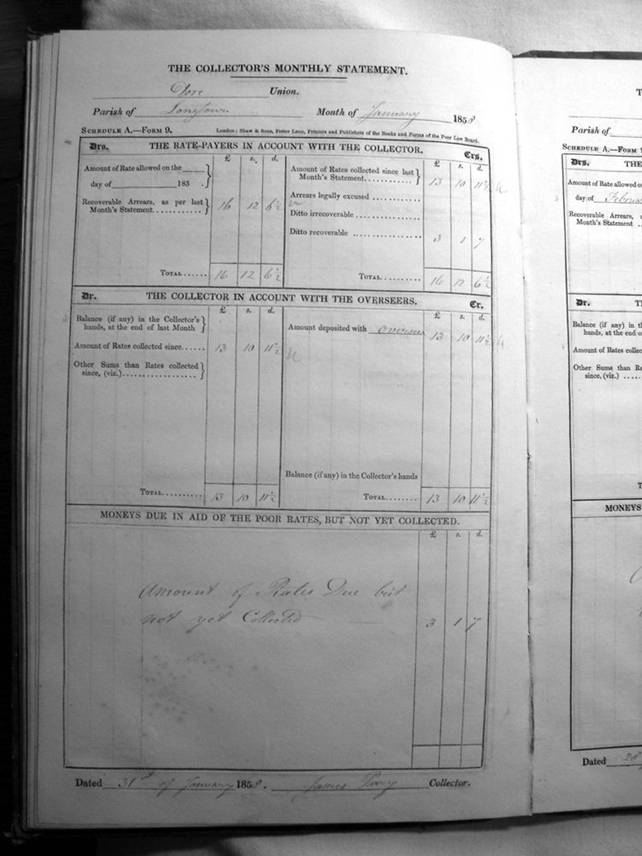 THE COLLECTOR'S MONTHLY STATEMENT.
Dore Union.
Parish of Longtown Month of January 1858
SCHEDULE A.—FORM 9. London: Shaw & Sons, Fetter Lane, Printers and Publishers of the Books and Forms of the Poor Law Board.
Drs. THE RATE-PAYERS IN ACCOUNT WITH THE COLLECTOR. Crs.
£ s. d. £ s. d.
Amount of Rate allowed on the
day of 185 .
Amount of Rates collected since last
Month's Statement 13 10 11½
Arrears legally excused
Recoverable Arrears, as per last
Month's Statement 16 12 6½
Ditto irrecoverable
Ditto recoverable 3 1 7
TOTAL 16 12 6½ TOTAL 16 12 6½
Dr. THE COLLECTOR IN ACCOUNT WITH THE OVERSEERS. Cr.
£ s. d. £ s. d.
Balance (if any) in the Collector's
hands, at the end of last Month
Amount deposited with Overseers 13 10 11½
Amount of Rates collected since 13 10 11½
Other Sums than Rates collected
since, (viz.)
Balance (if any) in the Collector's hands
TOTAL 13 10 11½ TOTAL 13 10 11½
MONEYS DUE IN AID OF THE POOR RATES, BUT NOT YET COLLECTED.
£ s. d.
Amount of Rates Due but
not yet Collected 3 1 7
Dated 31st of January 1858. James Collector.
Parish of
SCHEDULE A.—FORM
Drs. THE
Amount of Rate allowed
day of
Recoverable Arrears,
Month's Statement
Dr.
Balance (if any) in the
hands, at the end of
Amount of Rates
Other Sums than
since, (viz.)
MONEYS
Dated